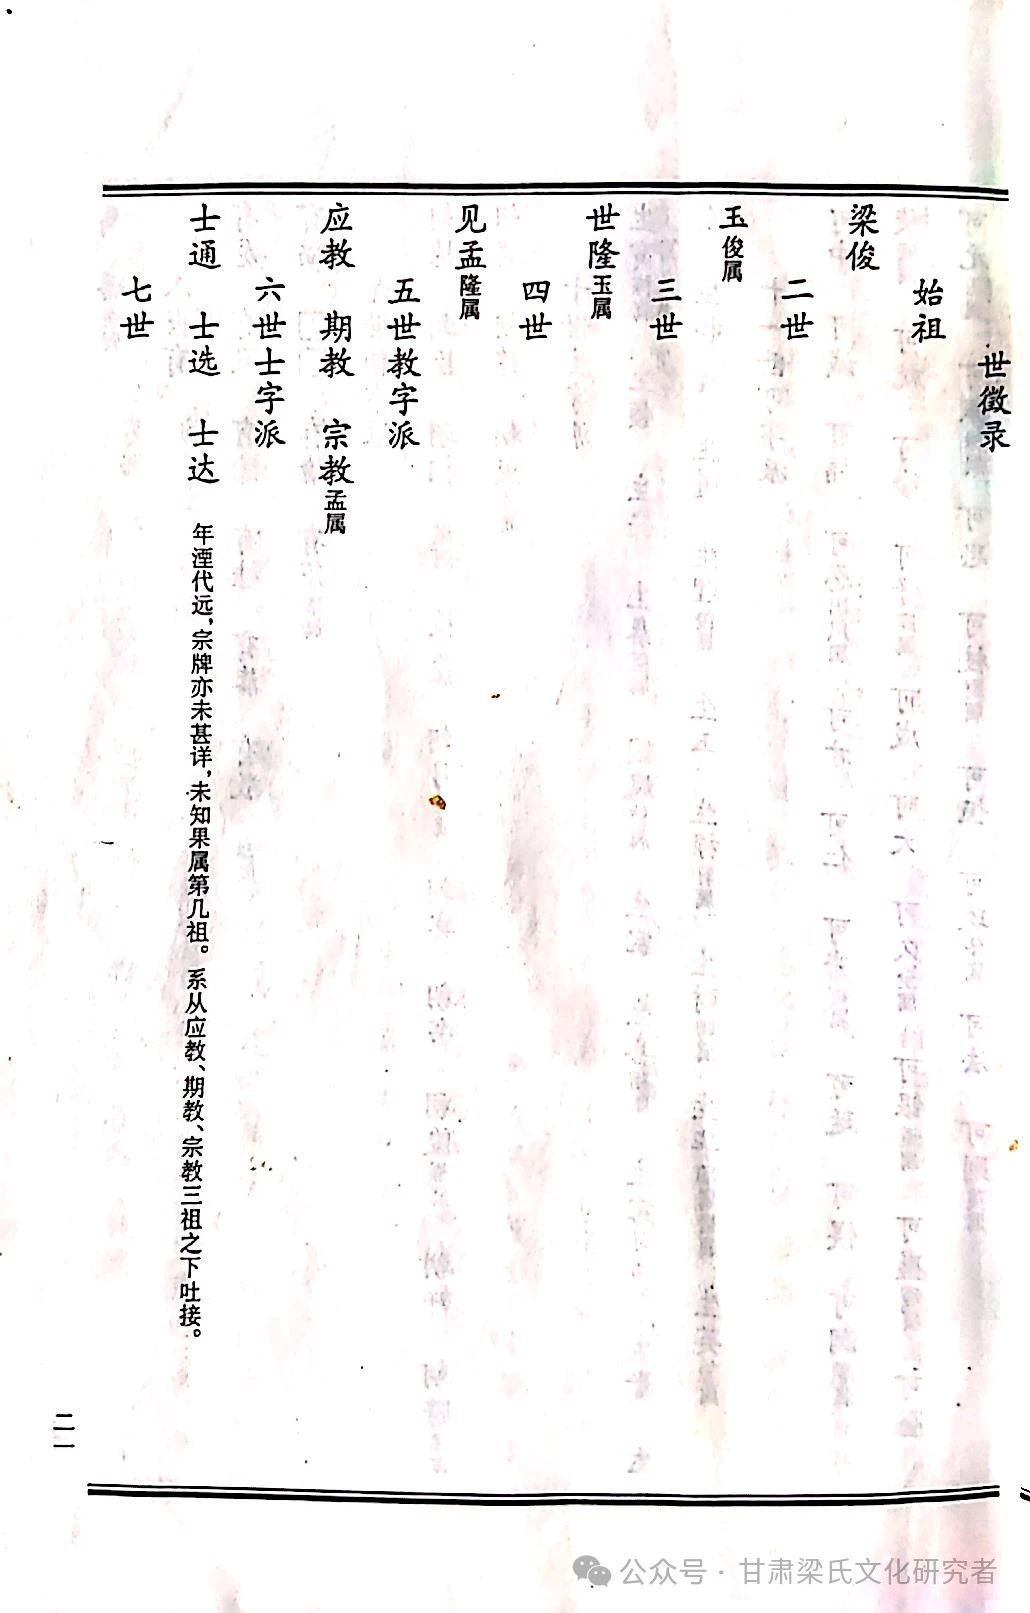 世徵录
始祖
梁俊
二世
玉俊属
三世
世隆玉属
四世
见孟隆属
五世教字派
应教 期教 宗教孟属
六世士字派
士通 士选 士达 年湮代远，宗牌亦未甚详，未知果属第几祖。系从应教、期教、宗教三祖之下吐接。
七世
二一
公众号 · 甘肃梁氏文化研究者